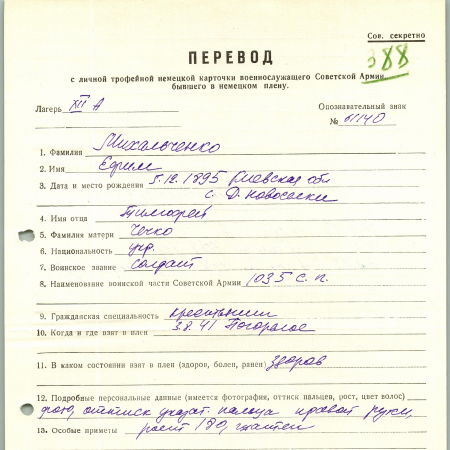 Сов. секретно
388
ПЕРЕВОД
с личной трофейной немецкой карточки военнослужащего Советской Армии,
бывшего в немецком плену.
Лагерь XII А
Опознавательный знак
№ 61140
1. Фамилия Михальченко
2. Имя Ефим
3. Дата и место рождения 5.12.1895 Киевская обл
с. Д. Новоселки
4. Имя отца Тимофей
5. Фамилия матери Чечко
6. Национальность укр.
7. Воинское звание солдат
8. Наименование воинской части Советской Армии 1035 с. п.
9. Гражданская специальность крестьянин
10. Когда и где взят в плен 3.8.41 Погорелое
11. В каком состоянии взят в плен (здоров, болен, ранен) здоров
12. Подробные персональные данные (имеется фотография, оттиск пальцев, рост, цвет волос)
фото, оттиск указат. пальца правой руки,
13. Особые приметы рост 180,